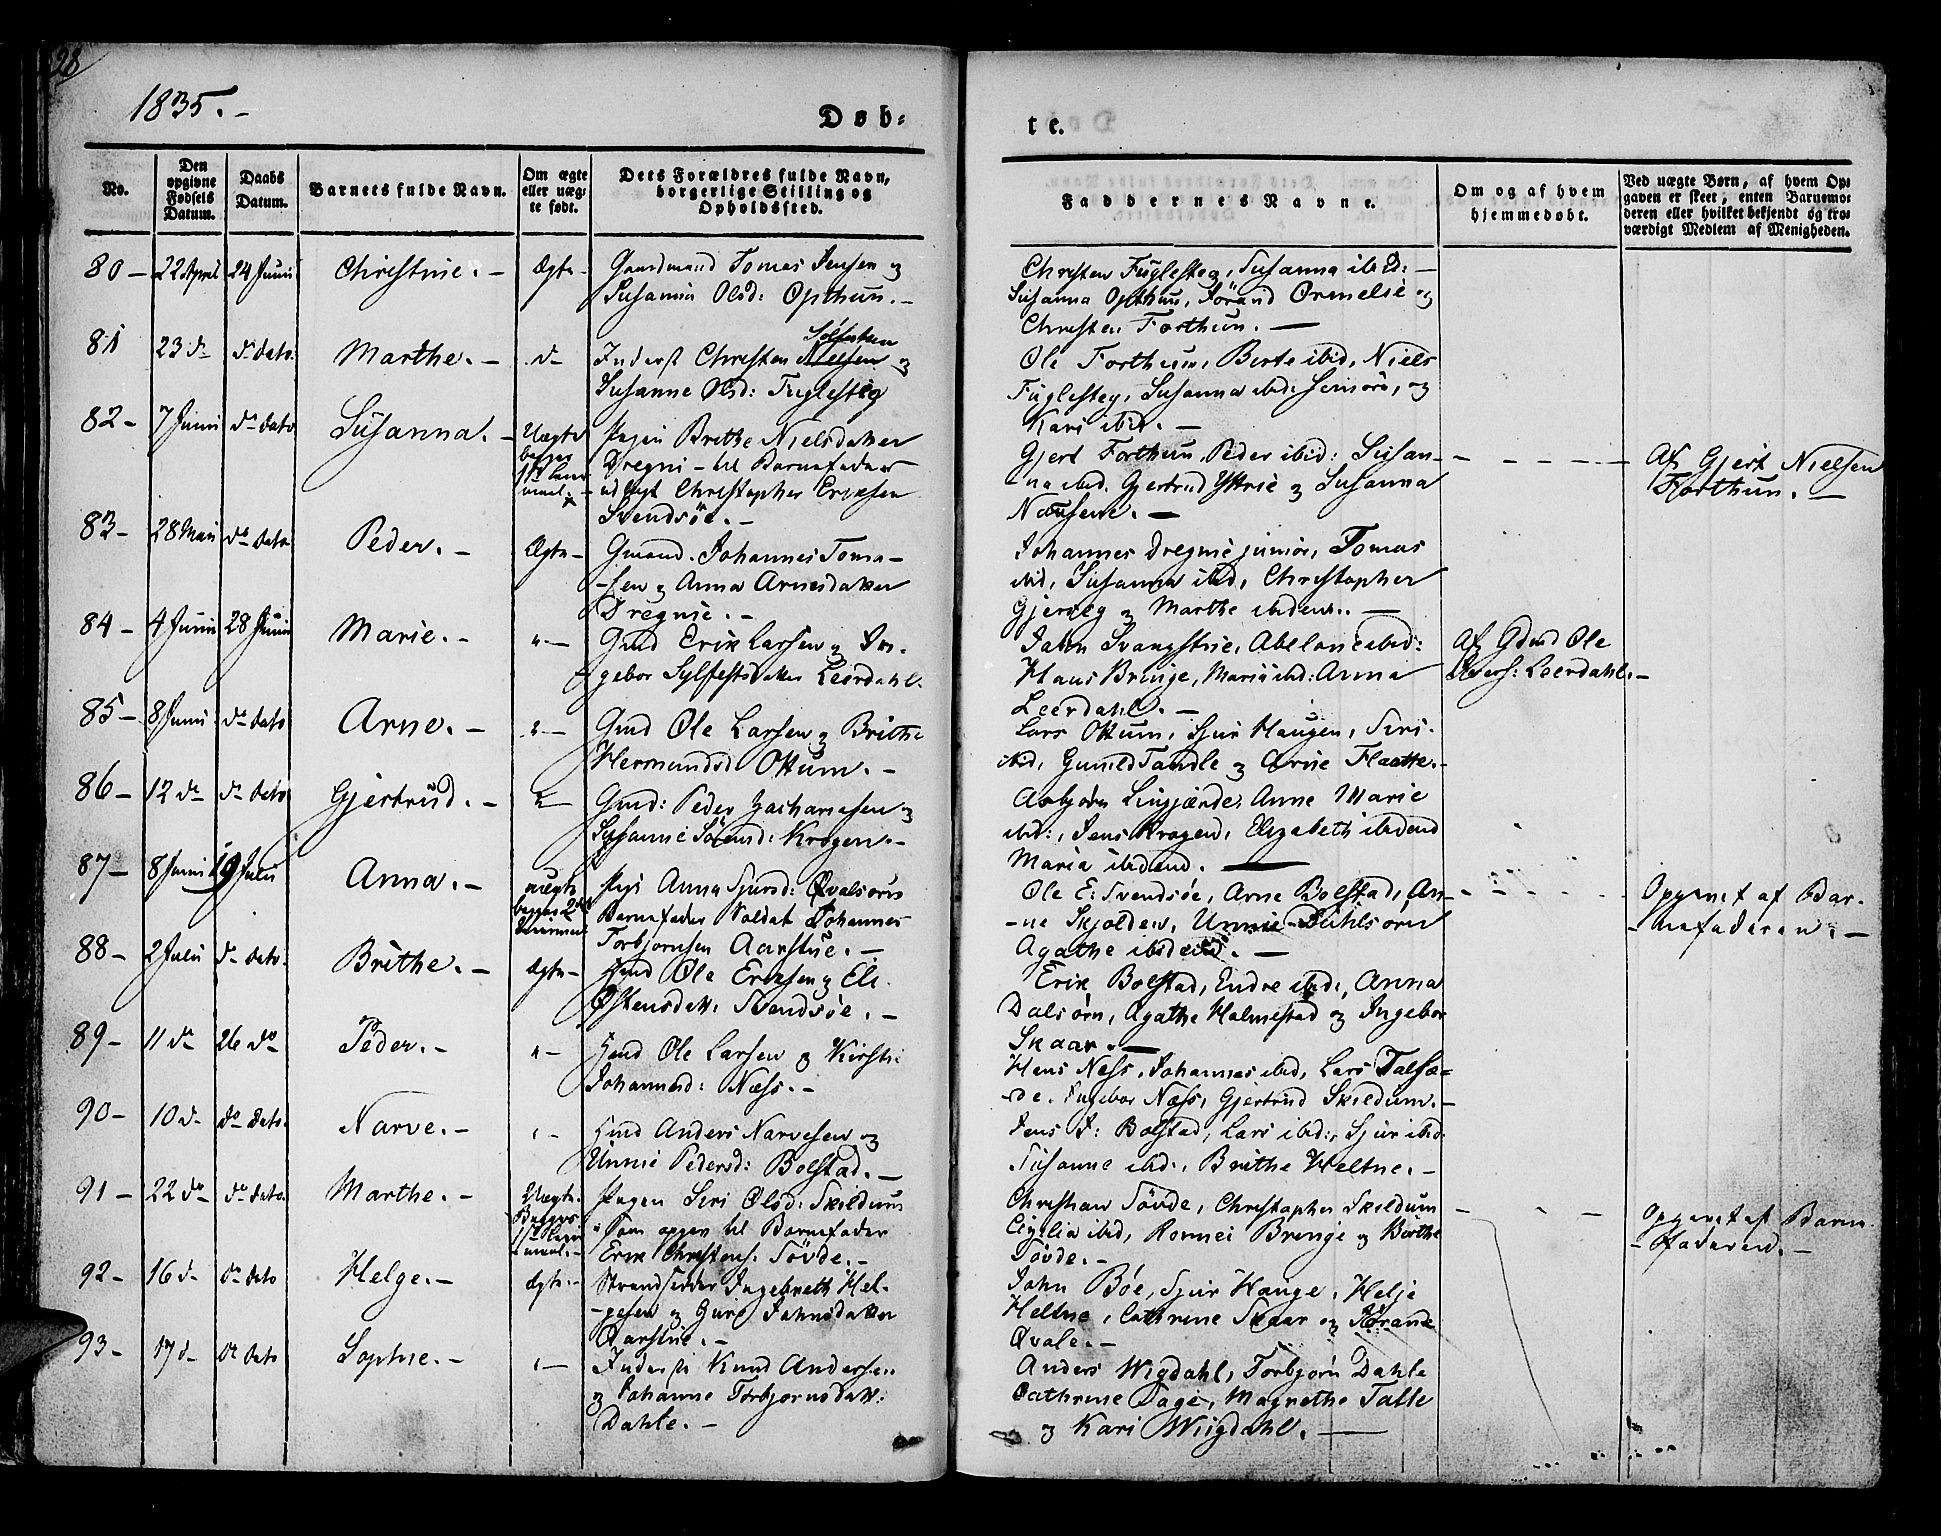 28
1835.-
Døb-
te.
No.
Den opgivne Fødsels Datum.
Daabs Datum.
Barnets fulde Navn.
Om ægte eller uægte født.
Dets Forældres fulde Navn, borgerlige Stilling og Opholdssted.
Faddernes Navne.
Om og af hvem hjemmedøbt.
Ved uægte Børn, af hvem Opgaven er skeet, enten Barnemoderen eller hvilket bekjendt og troværdigt Medlem af Menigheden.
80 - 22 April 24 Juni Christine. - Ægte -
Gaardmand Tomas Jensen og
Susanna Olsd: Opthun. -
Christen Fuglesteg, Susanna ibid: -
Susanna Opthun, Ormelie og
Christen Forthun. -
81 23 do do dato. Marthe. - do
Inderst Christen Nielsen og
Susanne Olsd: Fuglesteg
Ole Forthun, Berte ibid, Niels
Fuglesteg, Susanna ibid: og
Kari ibid. -
82 - 7 Juni do dato Susanna. - Uægte begges 1ste Leiermaal.
Pigen Brithe Nielsdatter
Dregni - til Barnefader
udlagt Christopher Eriksen
Svendsøe. -
Gjert Forthun, Peder ibid: Susan-
na ibid. Gjertrud Yttrie og Susanna
Af Gjert Nielsen
Forthun. -
83 - 28 Mai do dato Peder. - Ægte -
Gmand. Johannes Toma-
-sen og Anna Arnesdatter
Dregnie. -
Johannes Dregnie junior, Tomas
ibid, Susanna ibid, Christopher
Gjerveg og Marthe ibidem. -
84 - 4 Juni 28 Juni Marie. - " -
Gmd Erik Larsen og In-
gebor Sylfestsdatter Leerdahl.
John Svangstrie, Abelone ibid:
Hans Bringe, Maria ibid: Anna
Leerdahl. -
Af Gdmd Ole
Leerdahl. -
85 - 8 Juni do dato Arne. - " -
Gmd Ole Larsen og Brithe
Hermundsd Ottum. -
Lars Ottum, Sjur Haugen, Siri
ibid, Gunild Tandle og Arne Flaatte. -
86 - 12 do do dato Gjertrud. - " -
Gmd: Peder Zachariasen og
Susanne Sörensd: Krogen. -
Asbjørn Lingjærde, Anne Marie
ibid:, Jens Krogen, Elizabeth ibidem
Maria ibidem. -
87 - 8 Juni 19 Juli Anna. - uægte begges 2det Leiermaal
Pige Anna Sjursd: Qvalsøren
Barnefader Soldat Johannes
Torbjornsen Aarstue. -
Ole E: Svendsøe, Arne Bolstad, An-
-ne Skjolden, Unnie Dahlsørn
Agathe ibidem. -
Opgivet af Bar-
-nefaderen. -
88 - 2 Juli do dato. Brithe. - Ægte -
Hmd Ole Eriksen og Eli
Østensdatt. Svendsøe. -
Erik Bolstad, Endre ibid:, Anna
Dalsørn, Agathe Halmestad og Ingebor
Skaar. -
89 - 11 do 26 do Peder. - " -
Hmd Ole Larsen og Kirsti
Johannesd: Næss. -
Hans Ness, Johannes ibid, Lars Talsæ-
-de. Ingebor Næss, Gjertrud Skildum. -
90 - 10 do do dato. Narve. - " -
Hmd Anders Narvesen og
Unnie Pedersd: Bolstad. -
Jens J: Bolstad, Lars ibid:, Sjur ibid.
Susanne ibid:, Brithe Heltne. -
91 - 22 do do dato. Marthe. - Uægte. Begges 1ste Leiermaal. -
Pigen Siri Olsd: Skildum
Som opgav til Barnefader
Erik Christens: Tövde. -
Christian Tövde, Christopher Skildum
Cizilia ibid, Ronnei Bringe og Berthe
Tövde. -
Opgivet af Barne-
-faderen. -
92 - 16 do do dato Helge. - Ægte. -
Strandsidder Ingebreth Hel-
-gesen og Guri Johnsdatter
Aarstue. -
John Böe, Sjur Hauge, Helje
Heltne, Cathrine Skaar og
Qvale. -
93 - 17 do do dato Sophie. - " -
Inderst Knud Andersen
og Johanne Torbjørnsdatt:
Dahle. -
Anders Wigdahl, Torbjørn Dahle
Cathrine Magrethe
og Kari Wigdahl. -